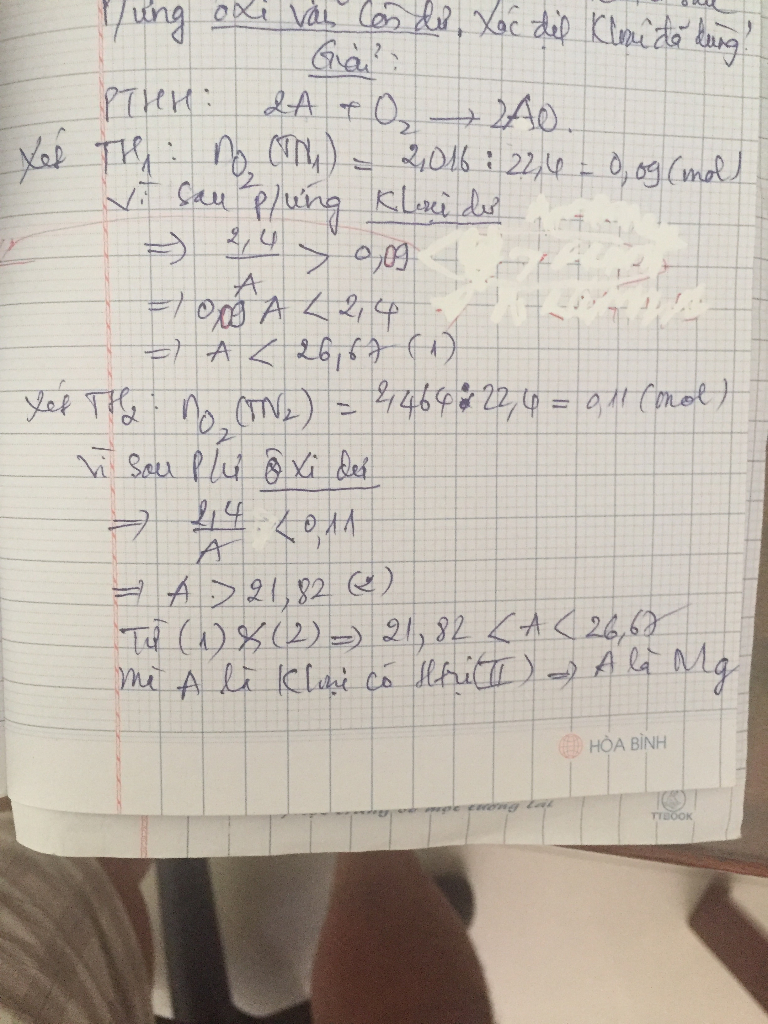 P/ứng oxi vẫn còn dư. Xác định Kloại đã dùng?
Giải:
PTHH: 2A + O2 → 2AO.
Xét TH1: nO2 (TN1) = 2,016 : 22,4 = 0,09 (mol)
Vì sau p/ứng Kloại dư
=> 2,4/A > 0,09
=> 0,09 A < 2,4
=> A < 26,67 (1)
Xét TH2: nO2 (TN2) = 2,464 : 22,4 = 0,11 (mol)
Vì sau P/ứ ôxi dư
=> 2,4/A < 0,11
=> A > 21,82 (2)
Từ (1) & (2) => 21,82 < A < 26,67
mà A là Kloại có Htrị (II) => A là Mg
HÒA BÌNH
TTBOOK